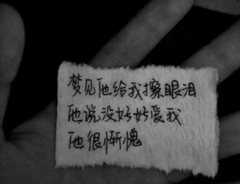 梦见他给我擦眼泪
他说没好好爱我
他很惭愧